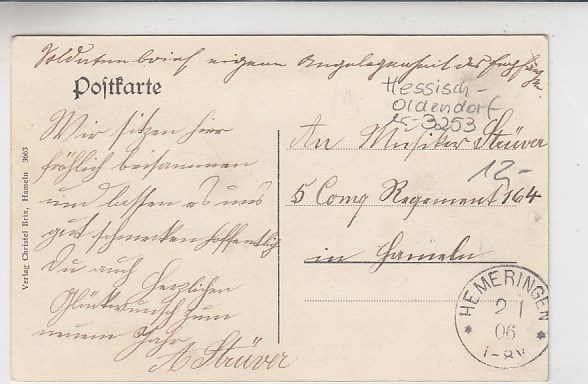 Soldatenbrief eigene Angelegenheit des Empfängers
Postkarte
Hessisch-
Oldendorf
3253
12,-
Wir sitzen hier
fröhlich beisammen
und lassen es uns
gut schmecken hoffentlich
Du auch Herzlichen
Glückwunsch zum
neuen Jahr
A Strüver
An Musiker Strüver
5 Comg Regement 164
in Hameln
HEMERINGEN
2 1
06
1-8V
Verlag Christel Brix, Hameln 3663